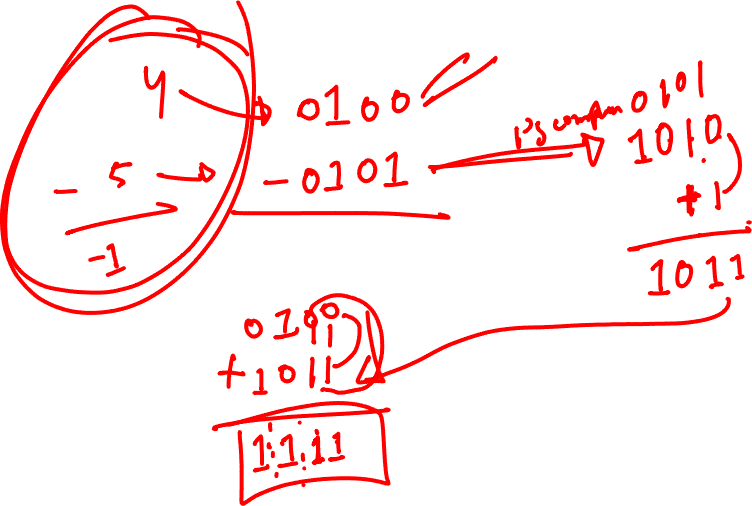 4 → 0100
- 5 → - 0101
-1
1's complem 0101
1010
+ 1
1011
0100
+ 1011
1111